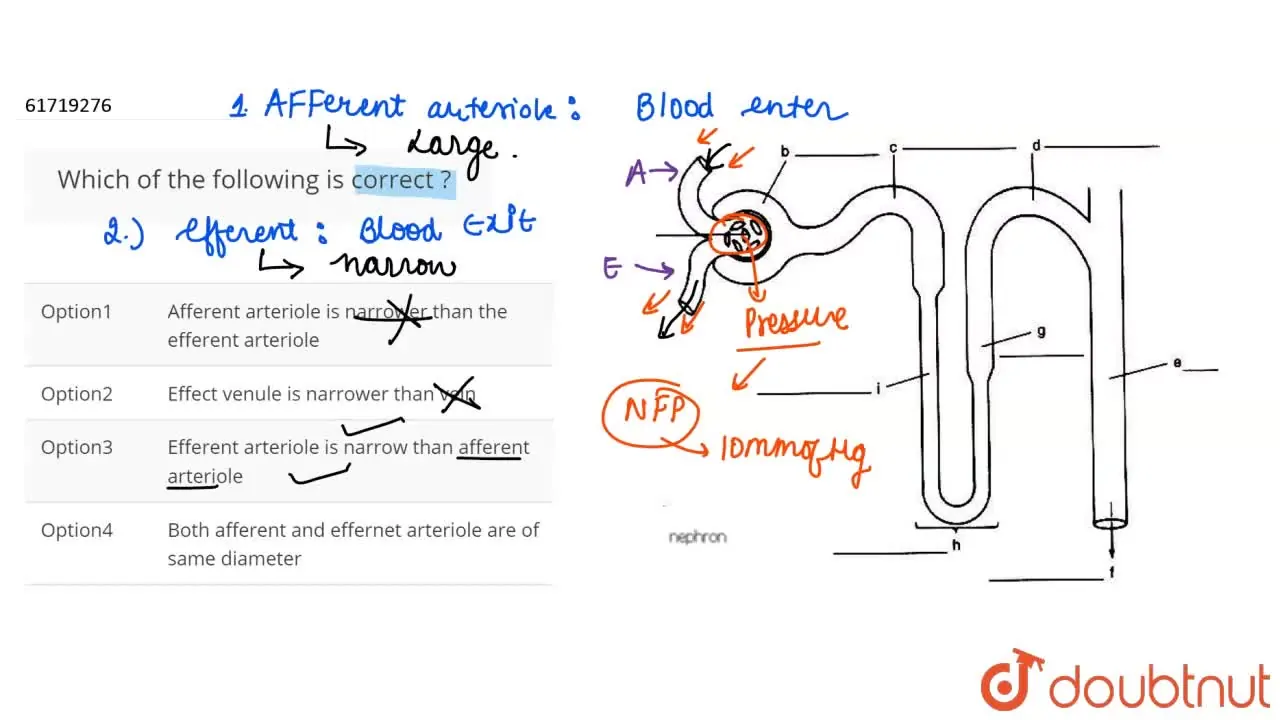 61719276
1. AFFerent arteriole : Blood enter
↳ Large.
Which of the following is correct ?
2.) Efferent : Blood Exit
↳ narrow
Option1 Afferent arteriole is narrower than the
efferent arteriole
Option2 Effect venule is narrower than vein
Option3 Efferent arteriole is narrow than afferent
arteriole
Option4 Both afferent and effernet arteriole are of
same diameter
A→
E→
b
c
d
Pressure
g
e
i
NFP
10mmof Hg
nephron
h
f
doubtnut